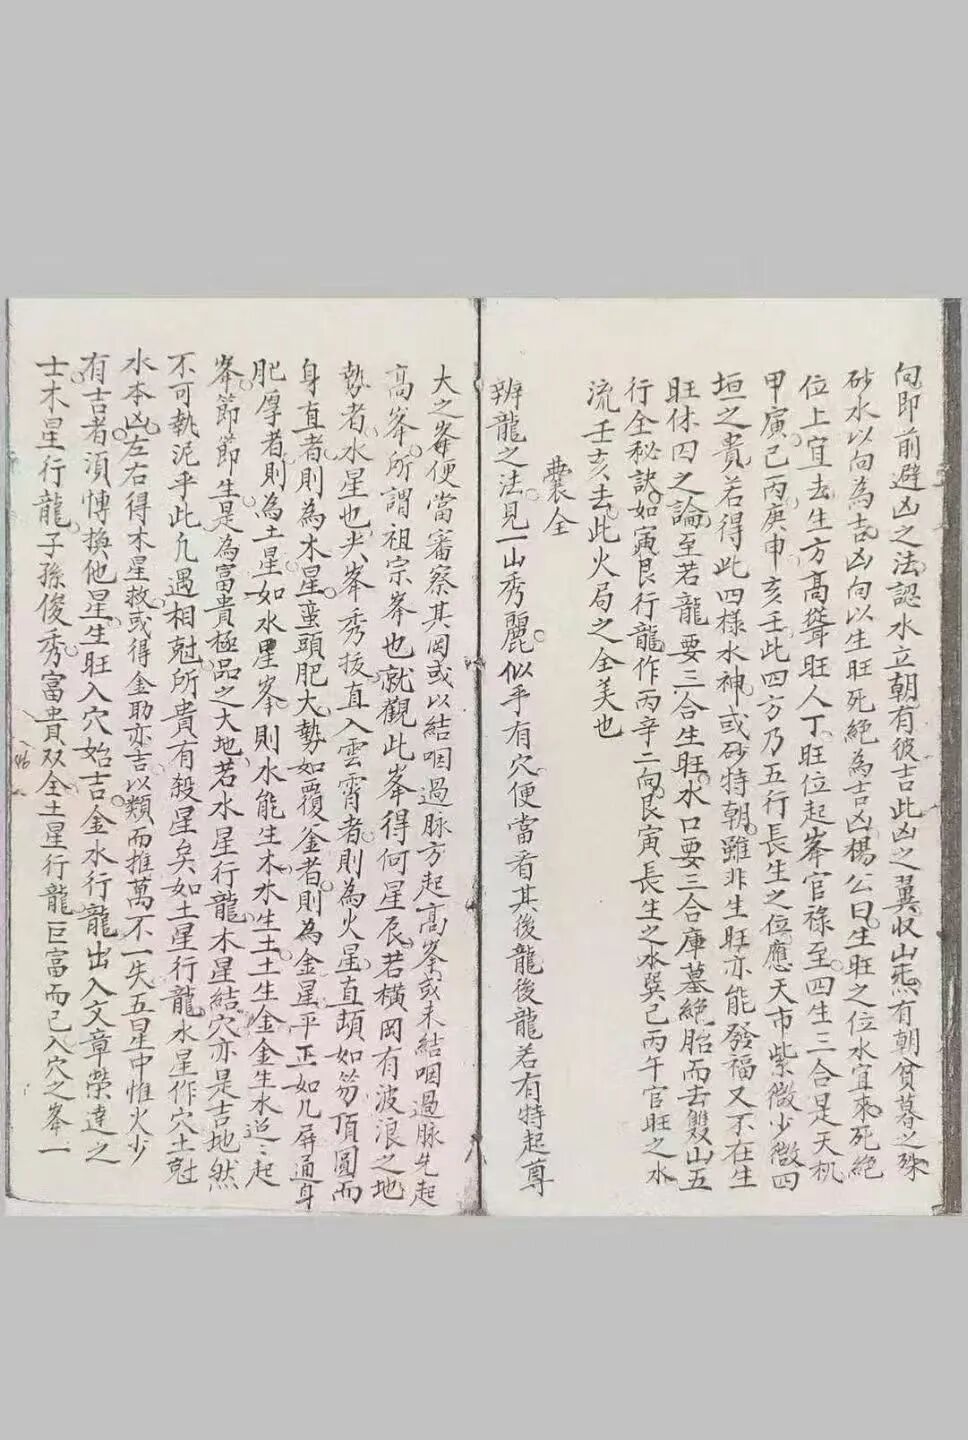 向即前避凶之法認水立朝有彼吉此凶之翼收山炁有朝貧暮之殊
砂水以向為吉凶向以生旺死絕為吉凶楊公曰生旺之位水宜來死絕
位上宜去生方高聳旺人丁旺位起峯官祿至四生三合是天机
甲寅己丙庚申亥壬此四方乃五行長生之位應天市紫微少微四
垣之貴若得此四樣水神或砂特朝雖非生旺亦能發福又不在生
旺休囚之論至若龍要三合生旺水口要三合庫墓絕胎而去雙山五
行全秘訣如寅艮行龍作丙辛二向艮寅長生之水巽己丙午官旺之水
流壬亥去此火局之全美也
囊全
辨龍之法見一山秀麗似乎有穴便當看其後龍後龍若有特起尊
大之峯便當審察其岡或以結咽過脉方起高峯或未結咽過脉先起
高峯所謂祖宗峯也就觀此峯得何星辰若橫岡有波浪之地
勢者水星也尖峯秀拔直入雲霄者則為火星直頭如笏頂圓而
身直者則為木星蛮頭肥大勢如覆釜者則為金星平正如几屏通身
肥厚者則為土星如水星峯則水能生木水生土土生金金生水迢〻起
峯節節生是為富貴極品之大地若水星行龍木星結穴亦是吉地然
不可執泥乎此凢遇相尅所貴有殺星矣如土星行龍水星作穴土尅
水本凶左右得木星救或得金助亦吉以類而推萬不一失五星中惟火少
有吉者須慱換他星生旺入穴始吉金水行龍出入文章榮達之
士木星行龍子孫俊秀富貴双全土星行龍巨富而已入穴之峯一
46